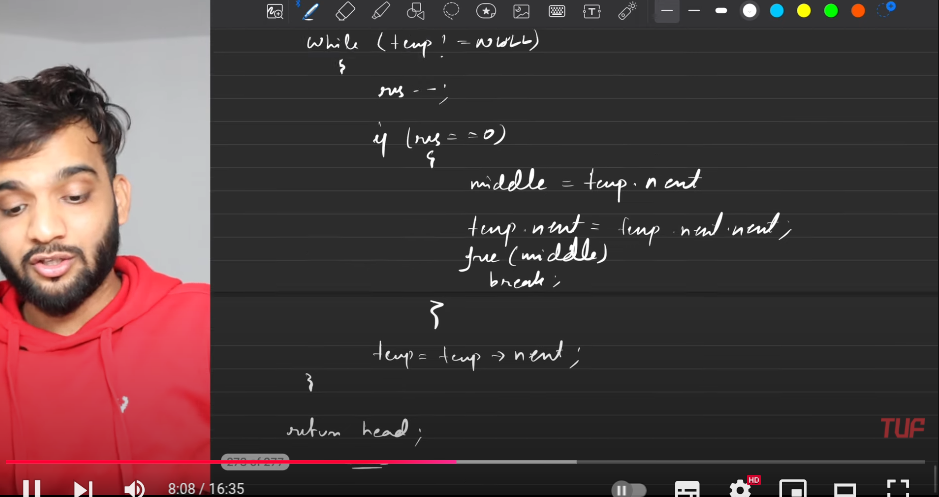 while (temp != NULL)
{
res--;
if (res == 0)
{
middle = temp.next
temp.next = temp.next.next;
free(middle)
break;
}
temp = temp → next;
}
return head;
TUF
273 of 277
8:08 / 16:35
HD